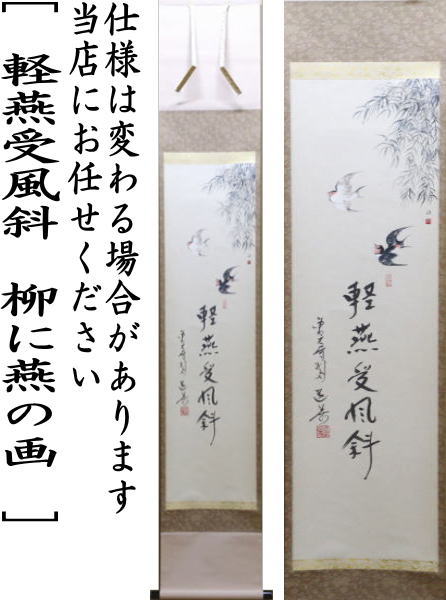 仕様は変わる場合があります
当店にお任せください
［　軽燕受風斜　柳に燕の画　］
軽燕受風斜
軽燕受風斜